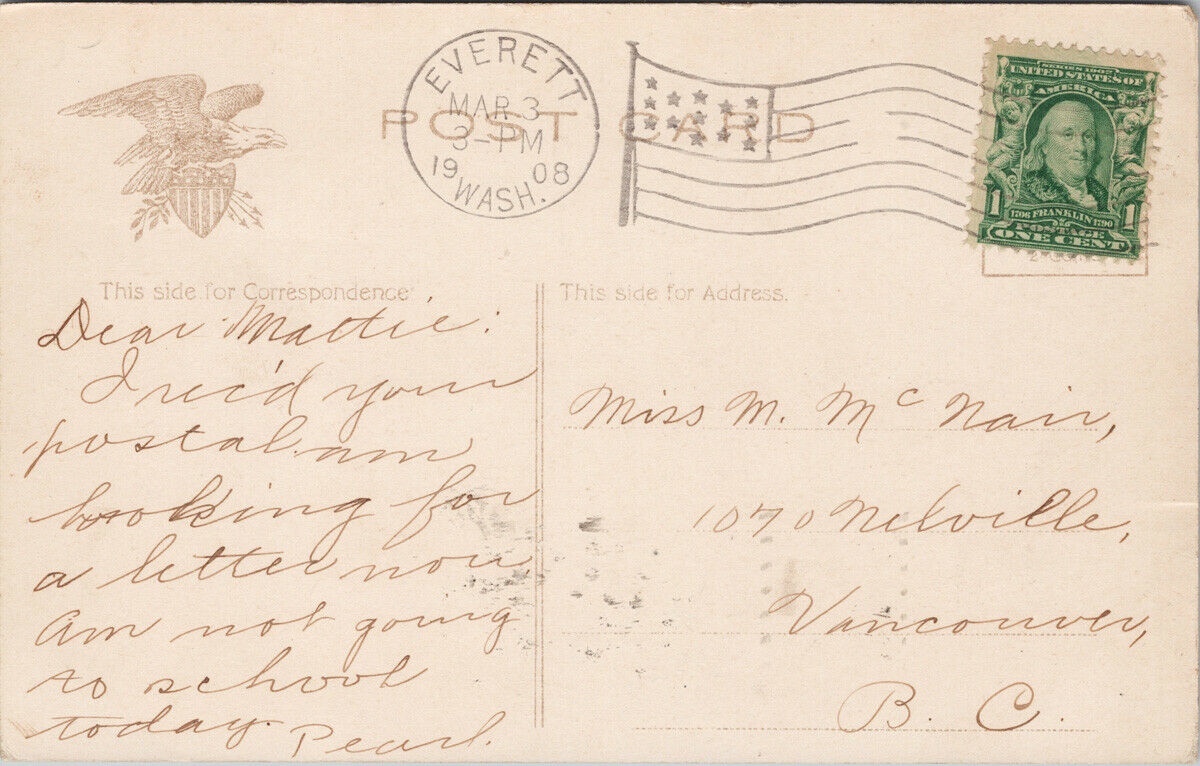 EVERETT
MAR 3
3-PM
1908
WASH.
POST CARD
SERIES 1902
UNITED STATES OF
AMERICA
1 1706 FRANKLIN 1790 1
POSTAGE
ONE CENT
This side for Correspondence
Dear Mattie:
I rec'd your
postal. am
looking for
a letter now
Am not going
to school
today. Pearl.
This side for Address.
Miss M. McNair,
1070 Melville,
Vancouver,
B. C.